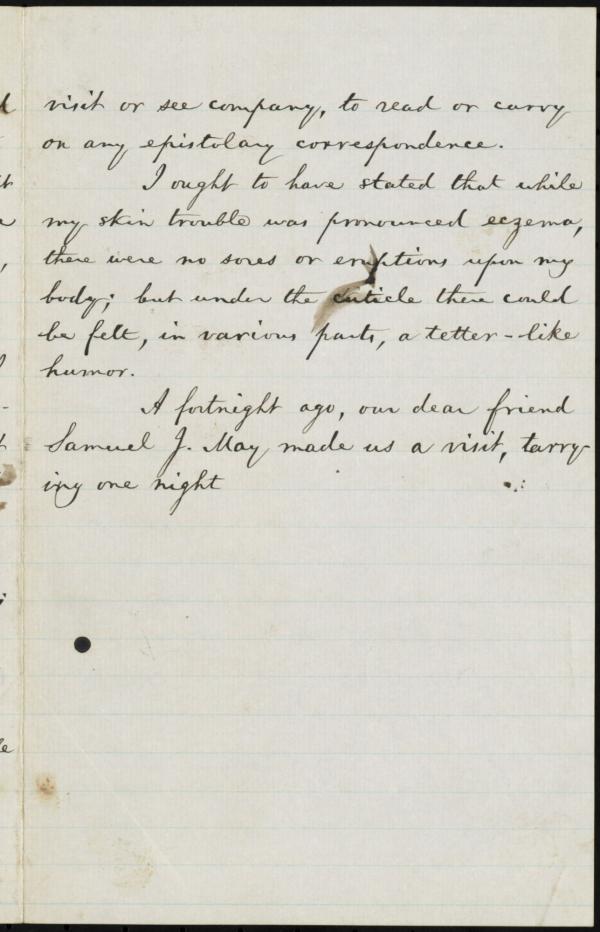 visit or see company, to read or carry
on any epistolary correspondence.
I ought to have stated that while
my skin trouble was pronounced eczema,
there were no sores or eruptions upon my
body; but under the cuticle there could
be felt, in various parts, a tetter-like
humor.
A fortnight ago, our dear friend
Samuel J. May made us a visit, tarry-
ing one night